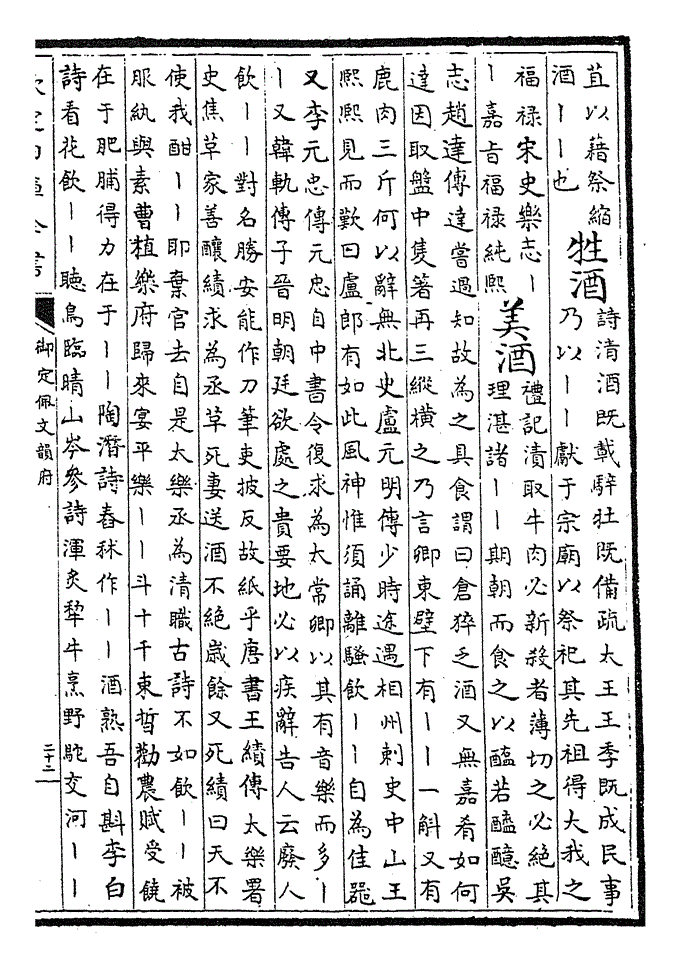 苴以藉祭縮
酒丨丨也
牲酒
詩清酒既載騂牡既備疏太王王季既成民事
乃以丨丨獻于宗廟以祭祀其先祖得大我之
福祿宋史樂志丨
丨嘉旨福祿純熙
美酒
禮記漬取牛肉必新殺者薄切之必絕其
理湛諸丨丨期朝而食之以醢若醯醷吳
志趙達傳達嘗過知故為之具食謂曰倉猝乏酒又無嘉肴如何
達因取盤中隻箸再三縱橫之乃言卿東壁下有丨丨一斛又有
鹿肉三斤何以辭無北史盧元明傳少時途遇相州刺史中山王
熙熙見而歎曰盧郎有如此風神惟須誦離騷飲丨丨自為佳器
又李元忠傳元忠自中書令復求為太常卿以其有音樂而多丨
丨又韓軌傳子晉明朝廷欲處之貴要地必以疾辭告人云廢人
飲丨丨對名勝安能作刀筆吏披反故紙乎唐書王績傳太樂署
史焦草家善釀績求為丞草死妻送酒不絕歲餘又死績曰天不
使我酣丨丨耶棄官去自是太樂丞為清職古詩不如飲丨丨被
服紈與素曹植樂府歸來宴平樂丨丨斗十千束晳勸農賦受饒
在于肥脯得力在于丨丨陶潛詩舂秫作丨丨酒熟吾自斟李白
詩看花飲丨丨聽鳥臨晴山岑參詩渾炙犂牛烹野駝交河丨丨
欽定四庫全書
御定佩文韻府
二十二